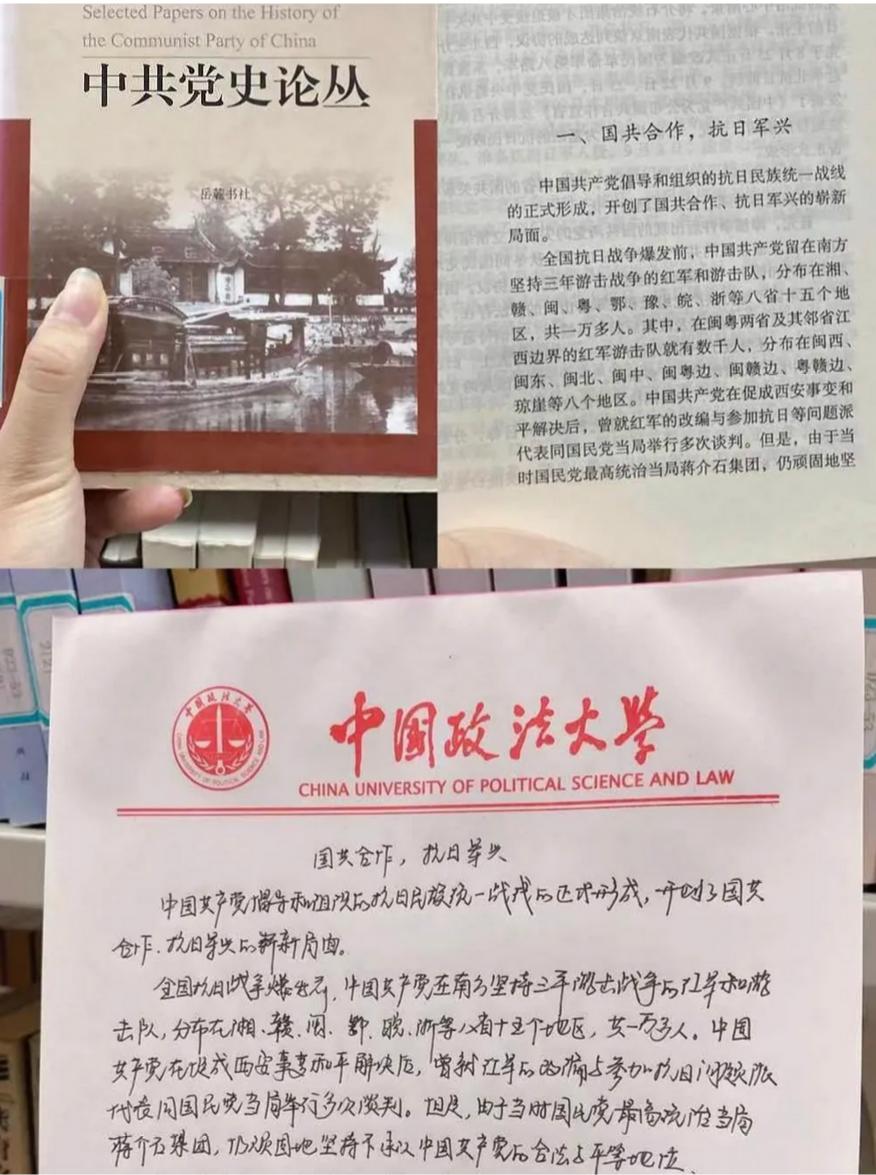 Selected Papers on the History of
the Communist Party of China
中共党史论丛
岳麓书社
一、国共合作，抗日军兴
中国共产党倡导和组织的抗日民族统一战线
的正式形成，开创了国共合作、抗日军兴的崭新
局面。
全国抗日战争爆发前，中国共产党留在南方
坚持三年游击战争的红军和游击队，分布在湘、
赣、闽、粤、鄂、豫、皖、浙等八省十五个地
区，共一万多人。其中，在闽粤两省及其邻省江
西边界的红军游击队就有数千人，分布在闽西、
闽东、闽北、闽中、闽粤边、闽赣边、粤赣边、
琼崖等八个地区。中国共产党在促成西安事变和
平解决后，曾就红军的改编与参加抗日等问题派
代表同国民党当局举行多次谈判。但是，由于当
时国民党最高统治当局蒋介石集团，仍顽固地坚
中国政法大学
CHINA UNIVERSITY OF POLITICAL SCIENCE AND LAW
国共合作，抗日军兴
中国共产党倡导和组织的抗日民族统一战线的正式形成，开创了国共
合作、抗日军兴的崭新局面。
全国抗日战争爆发前，中国共产党在南方坚持三年游击战争的红军和游
击队，分布在湘、赣、闽、鄂、皖、浙等八省十五个地区，共一万多人。中国
共产党在促成西安事变和平解决后，曾就红军的改编与参加抗日问题派
代表同国民党当局举行多次谈判。但是，由于当时国民党最高统治当局
蒋介石集团，仍顽固地坚持不承认中国共产党的合法与平等地位